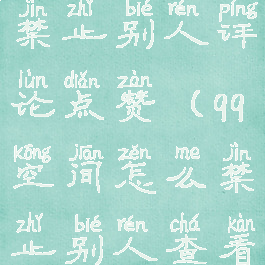 jìn zhǐ bié rén píng
禁止别人评
lùn diǎn zàn
论点赞(qq
kōng jiān zěn me jìn
空间怎么禁
zhǐ bié rén chá kàn
止别人查看